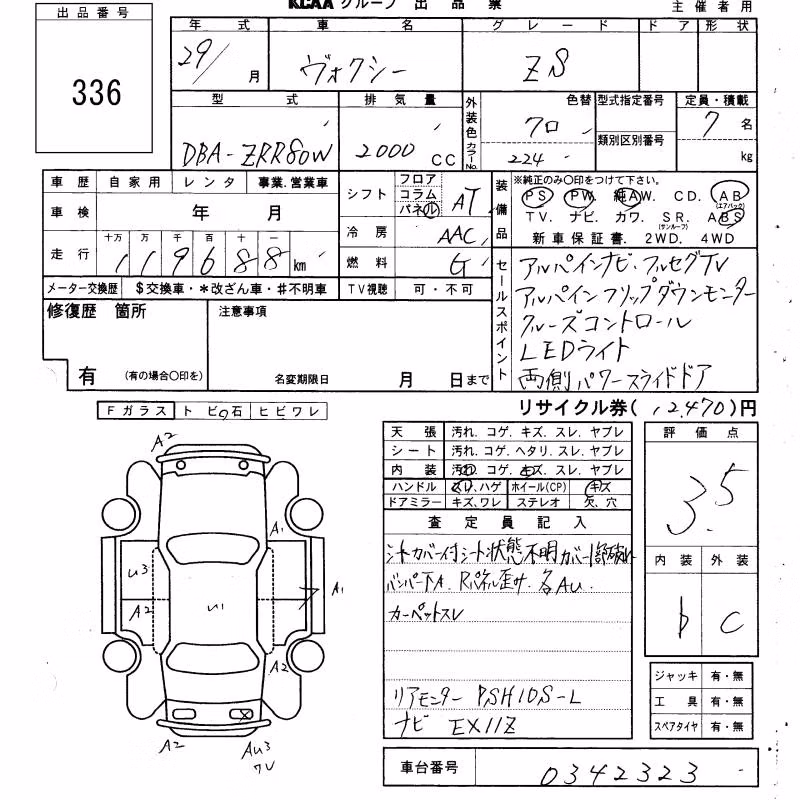 KCAA グループ 出品票
主催者用
出品番号
336
年式 車名 グレード ドア 形状
29/ 月 ヴォクシー ZS
型式 排気量 外装色 色替 型式指定番号 定員・積載
カラーNo. 類別区別番号
DBA-ZRR80W 2000 CC クロ 224 7名
kg
車歴 自家用 レンタ 事業.営業車
車検 年 月
走行 十万 万 千 百 十 一
119688 km
メーター交換歴 $交換車・*改ざん車・#不明車
シフト フロア コラム パネル AT
冷房 AAC
燃料 G
TV視聴 可・不可
装備品 ※純正のみ〇印をつけて下さい。
PS PW 純AW. CD. AB (エアバック)
TV. ナビ. カワ. SR. ABS (サンルーフ)
新車保証書. 2WD. 4WD
修復歴 箇所
有 (有の場合〇印を)
注意事項
名変期限日 月 日まで
セールスポイント
アルパインナビ・フルセグTV
アルパインフリップダウンモニター
クルーズコントロール
LEDライト
両側パワースライドドア
リサイクル券( 12,470 )円
Fガラス トビ石 ヒビワレ
天張 汚れ. コゲ. キズ. スレ. ヤブレ
シート 汚れ. コゲ. ヘタリ. スレ. ヤブレ
内装 汚れ. コゲ. キズ. スレ. ヤブレ
ハンドル スレ.ハゲ ホイール(CP) キズ
ドアミラー キズ.ワレ ステレオ 欠.穴
評価点
3.5
内装 外装
b C
査定員記入
シートカバー付シート状態不明カバー1部破れ
バンパー下A. Rパネル歪サ. 各AU.
カーペットスレ
リアモニター PSH10S-L
ナビ EX11Z
A2
A1
U3
A1
A2
U1
A2
A2
AU3
ワレ
×
ジャッキ 有・無
工具 有・無
スペアタイヤ 有・無
車台番号 0342323